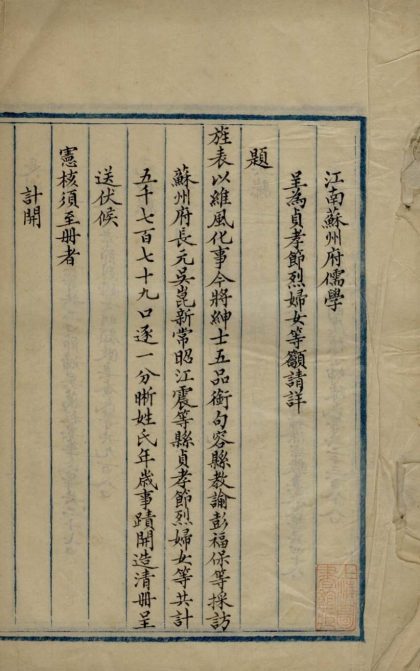 江南蘇州府儒學
呈為貞孝節烈婦女等籲請詳
題
旌表以維風化事今將紳士五品銜句容縣教諭彭福保等採訪
蘇州府長元吳崑新常昭江震等縣貞孝節烈婦女等共計
五千七百七十九口逐一分晰姓氏年歲事蹟開造清冊呈
送伏候
憲核須至冊者
計開